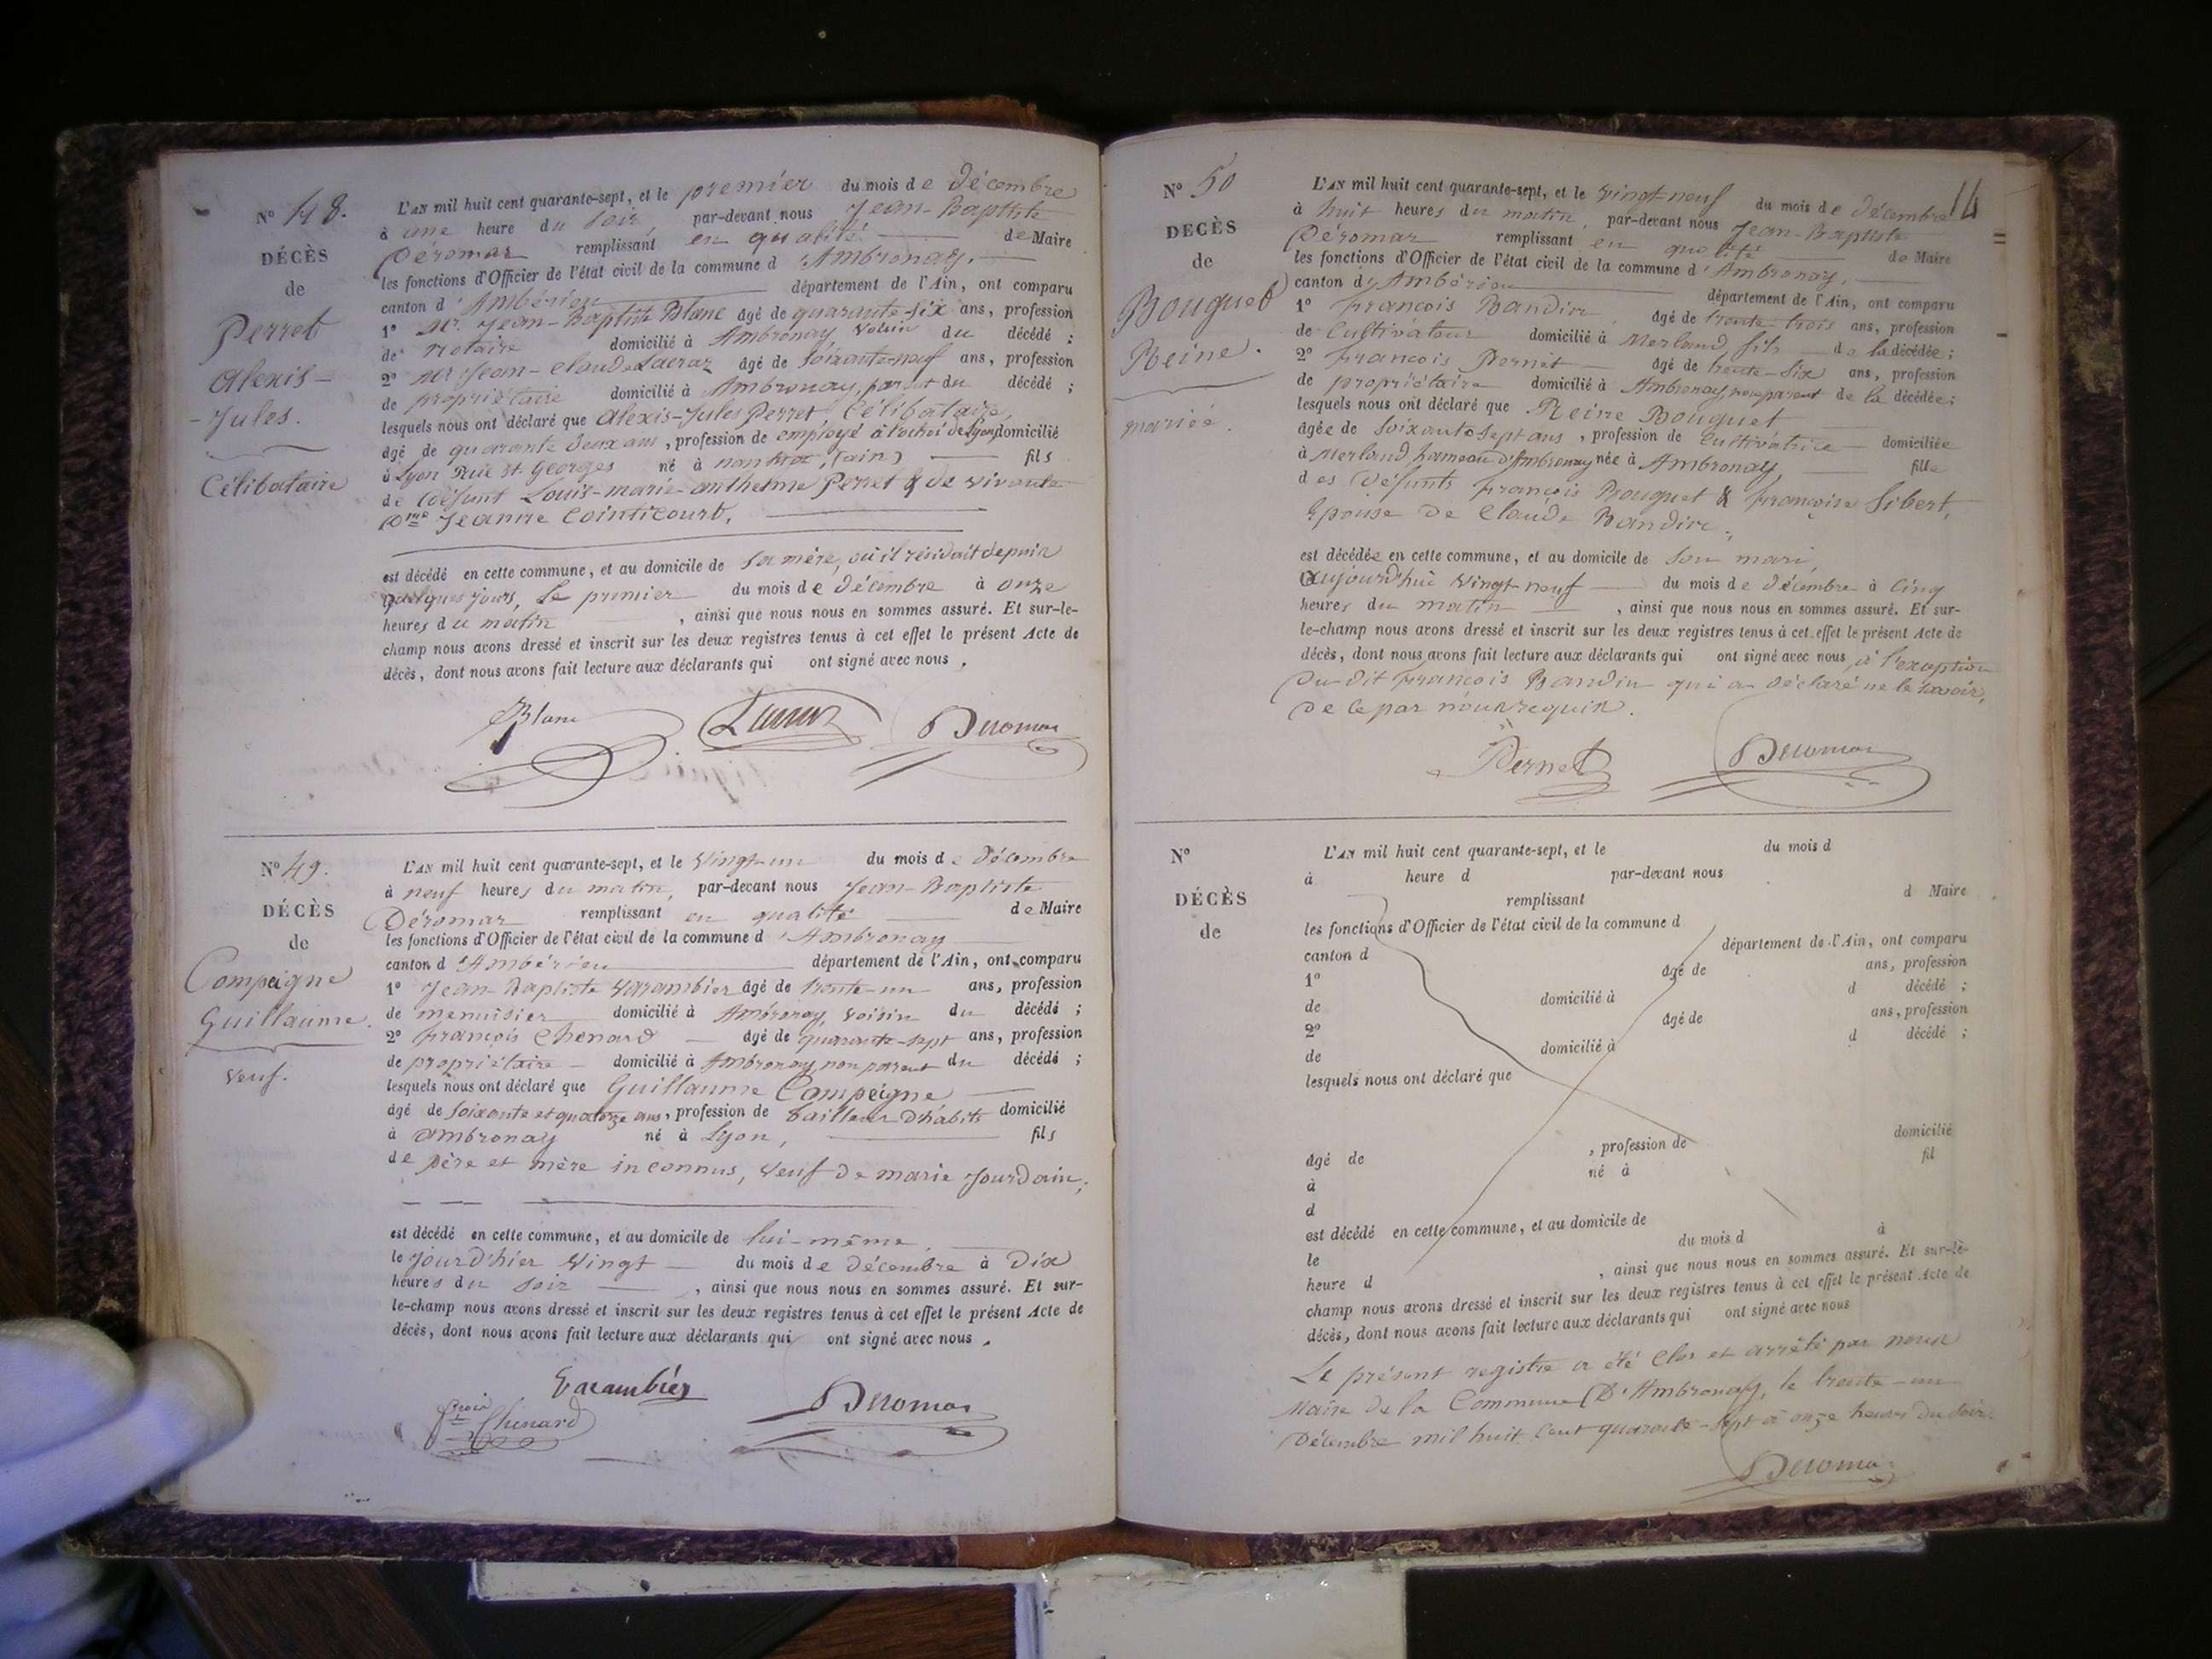 N° 48.
DÉCÈS
de
Perret
Alexis-
-Jules.
Célibataire
L'AN mil huit cent quarante-sept, et le premier du mois de Décembre
à une heure du soir, par-devant nous Jean-Baptiste
Déromas remplissant en qualité de Maire
les fonctions d'Officier de l'état civil de la commune d'Ambronay,
canton d'Ambérieu département de l'Ain, ont comparu
1° Mr. Jean-Baptiste Blanc âgé de quarante-six ans, profession
de notaire domicilié à Ambronay voisin du décédé ;
2° Mr Jean-Claude Lacraz âgé de soixante-neuf ans, profession
de propriétaire domicilié à Ambronay, parent du décédé ;
lesquels nous ont déclaré que Alexis-Jules Perret Célibataire,
âgé de quarante deux ans, profession de employé à l'octroi de Lyon, domicilié
à Lyon Rue St. Georges né à (ain) fils
de Défunt Louis-marie-anthelme Perret & de vivante
Dme Jeanne Cointicourt,
est décédé en cette commune, et au domicile de sa mère, où il résidait depuis
quelques jours, le premier du mois de Décembre à onze
heures du matin, ainsi que nous nous en sommes assuré. Et sur-le-
champ nous avons dressé et inscrit sur les deux registres tenus à cet effet le présent Acte de
décès, dont nous avons fait lecture aux déclarants qui ont signé avec nous.
Blanc Lacraz Deromas
N° 49.
DÉCÈS
de
Compeigne
Guillaume.
veuf.
L'AN mil huit cent quarante-sept, et le vingt-un du mois de Décembre
à neuf heures du matin, par-devant nous Jean-Baptiste
Déromas remplissant en qualité de Maire
les fonctions d'Officier de l'état civil de la commune d'Ambronay
canton d'Ambérieu département de l'Ain, ont comparu
1° Jean-Baptiste Varambier âgé de trente-un ans, profession
de menuisier domicilié à Ambronay voisin du décédé ;
2° François Chenard âgé de quarante-sept ans, profession
de propriétaire domicilié à Ambronay, non parent du décédé ;
lesquels nous ont déclaré que Guillaume Compeigne
âgé de soixante et quatorze ans, profession de tailleur d'habits domicilié
à ambronay né à Lyon, fils
de père et mère inconnus, veuf de marie Jourdain;
est décédé en cette commune, et au domicile de lui-même
le jour d'hier vingt du mois de Décembre à Dix
heures du soir, ainsi que nous nous en sommes assuré. Et sur-
le-champ nous avons dressé et inscrit sur les deux registres tenus à cet effet le présent Acte de
décès, dont nous avons fait lecture aux déclarants qui ont signé avec nous.
Varambier
Chenard Deromas
14
N° 50
DECÈS
de
Bouguet
Reine.
mariée.
L'AN mil huit cent quarante-sept, et le vingt-neuf du mois de Décembre
à huit heures du matin, par-devant nous Jean-Baptiste
Déromas remplissant en qualité de Maire
les fonctions d'Officier de l'état civil de la commune d'Ambronay,
canton d'Ambérieu département de l'Ain, ont comparu
1° François Bandin âgé de trente trois ans, profession
de Cultivateur domicilié à Merland fils de la décédée ;
2° François Pernet âgé de trente-six ans, profession
de propriétaire domicilié à Ambronay, non parent de la décédée ;
lesquels nous ont déclaré que Reine Bouguet
âgée de soixante sept ans, profession de Cultivatrice domiciliée
à Merland hameau d'Ambronay née à Ambronay, fille
des Défunts François Bouguet & Françoise Sibert,
Epouse de Claude Bandin.
est décédée en cette commune, et au domicile de son mari,
aujourd'hui vingt-neuf du mois de Décembre à Cinq
heures du matin, ainsi que nous nous en sommes assuré. Et sur-
le-champ nous avons dressé et inscrit sur les deux registres tenus à cet effet le présent Acte de
décès, dont nous avons fait lecture aux déclarants qui ont signé avec nous à l'exception
Du dit François Bandin qui a déclaré ne le savoir,
de ce par nous requis.
Pernet Deromas
N°
DÉCÈS
de
L'AN mil huit cent quarante-sept, et le du mois d
à heure d par-devant nous
remplissant d Maire
les fonctions d'Officier de l'état civil de la commune d
canton d département de l'Ain, ont comparu
1° âgé de ans, profession
de domicilié à d décédé ;
2° âgé de ans, profession
de domicilié à d décédé ;
lesquels nous ont déclaré que
âgé de , profession de domicilié
à né à fil
d
est décédé en cette commune, et au domicile de
le du mois d à
heure d , ainsi que nous nous en sommes assuré. Et sur-le-
champ nous avons dressé et inscrit sur les deux registres tenus à cet effet le présent Acte de
décès, dont nous avons fait lecture aux déclarants qui ont signé avec nous
Le présent registre a été clos et arrêté par nous
Maire de la Commune D'Ambronay, le trente-un
Décembre mil huit cent quarante-sept à onze heures du soir.
Deromas